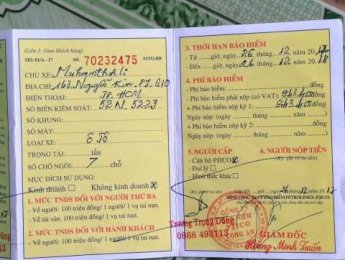 (Liên 1: Giao khách hàng)
MS: 01/A - 17
Số 70232475
CHỦ XE: Muhamthali
ĐỊA CHỈ: 163. Nguyễn Kim. P7. Q10
ĐIỆN THOẠI: TP. HCM
SỐ BIỂN KIỂM SOÁT: 52N. 5223
SỐ KHUNG:
SỐ MÁY:
LOẠI XE:
TRỌNG TẢI: tấn
SỐ CHỖ NGỒI: 7 chỗ
MỤC ĐÍCH SỬ DỤNG:
Kinh doanh Không kinh doanh X
1. MỨC TNDS ĐỐI VỚI NGƯỜI THỨ BA
- Về người: 100 triệu đồng/ 1 người/ 1 vụ tai nạn.
- Về tài sản: 100 triệu đồng/ 1 vụ tai nạn.
2. MỨC TNDS ĐỐI VỚI HÀNH KHÁCH
- Về người: 100 triệu đồng/ 1 người/ 1 vụ tai nạn.
3. THỜI HẠN BẢO HIỂM
Từ giờ, ngày 26 tháng 12 năm 2017
Đến giờ, ngày 26 tháng 12 năm 2018
4. PHÍ BẢO HIỂM
- Phí bảo hiểm: đồng
- Phí bảo hiểm phải nộp (có VAT): 943.400 đồng
- Phí bảo hiểm nộp kỳ 1: 943.400 đồng
- Phí bảo hiểm nộp kỳ 2: đồng
5. NGƯỜI CẤP
6. NGƯỜI NỘP TIỀN
- Cán bộ PJICO
- Đại lý
- Hình thức khác
26 12 17
GIÁM ĐỐC
Trương Trọng Dũng
0868 493113
PJICO
Hoàng Minh Tuấn